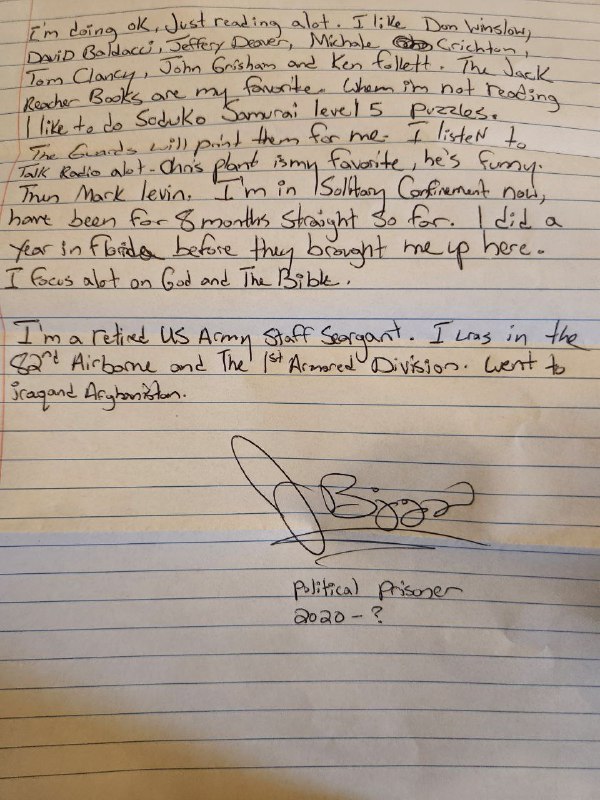 I'm doing ok, Just reading alot. I like Don Winslow,
David Baldacci, Jeffery Deaver, Michale Crichton,
Tom Clancy, John Grisham and Ken follett. The Jack
Reacher Books are my favorite. When i'm not reading
I like to do Soduko Samurai level 5 puzzles.
The Guards will print them for me. I listen to
Talk Radio alot - Chris plant is my favorite, he's funny.
Then Mark levin. I'm in Solitary Confinement now,
have been for 8 months straight so far. I did a
year in florida before they brought me up here.
I focus alot on God and The Bible.
I'm a retired US Army Staff Seargant. I was in the
82nd Airborne and The 1st Armored Division. Went to
iraq and Afghanistan.
J Biggs
political prisoner
2020 - ?